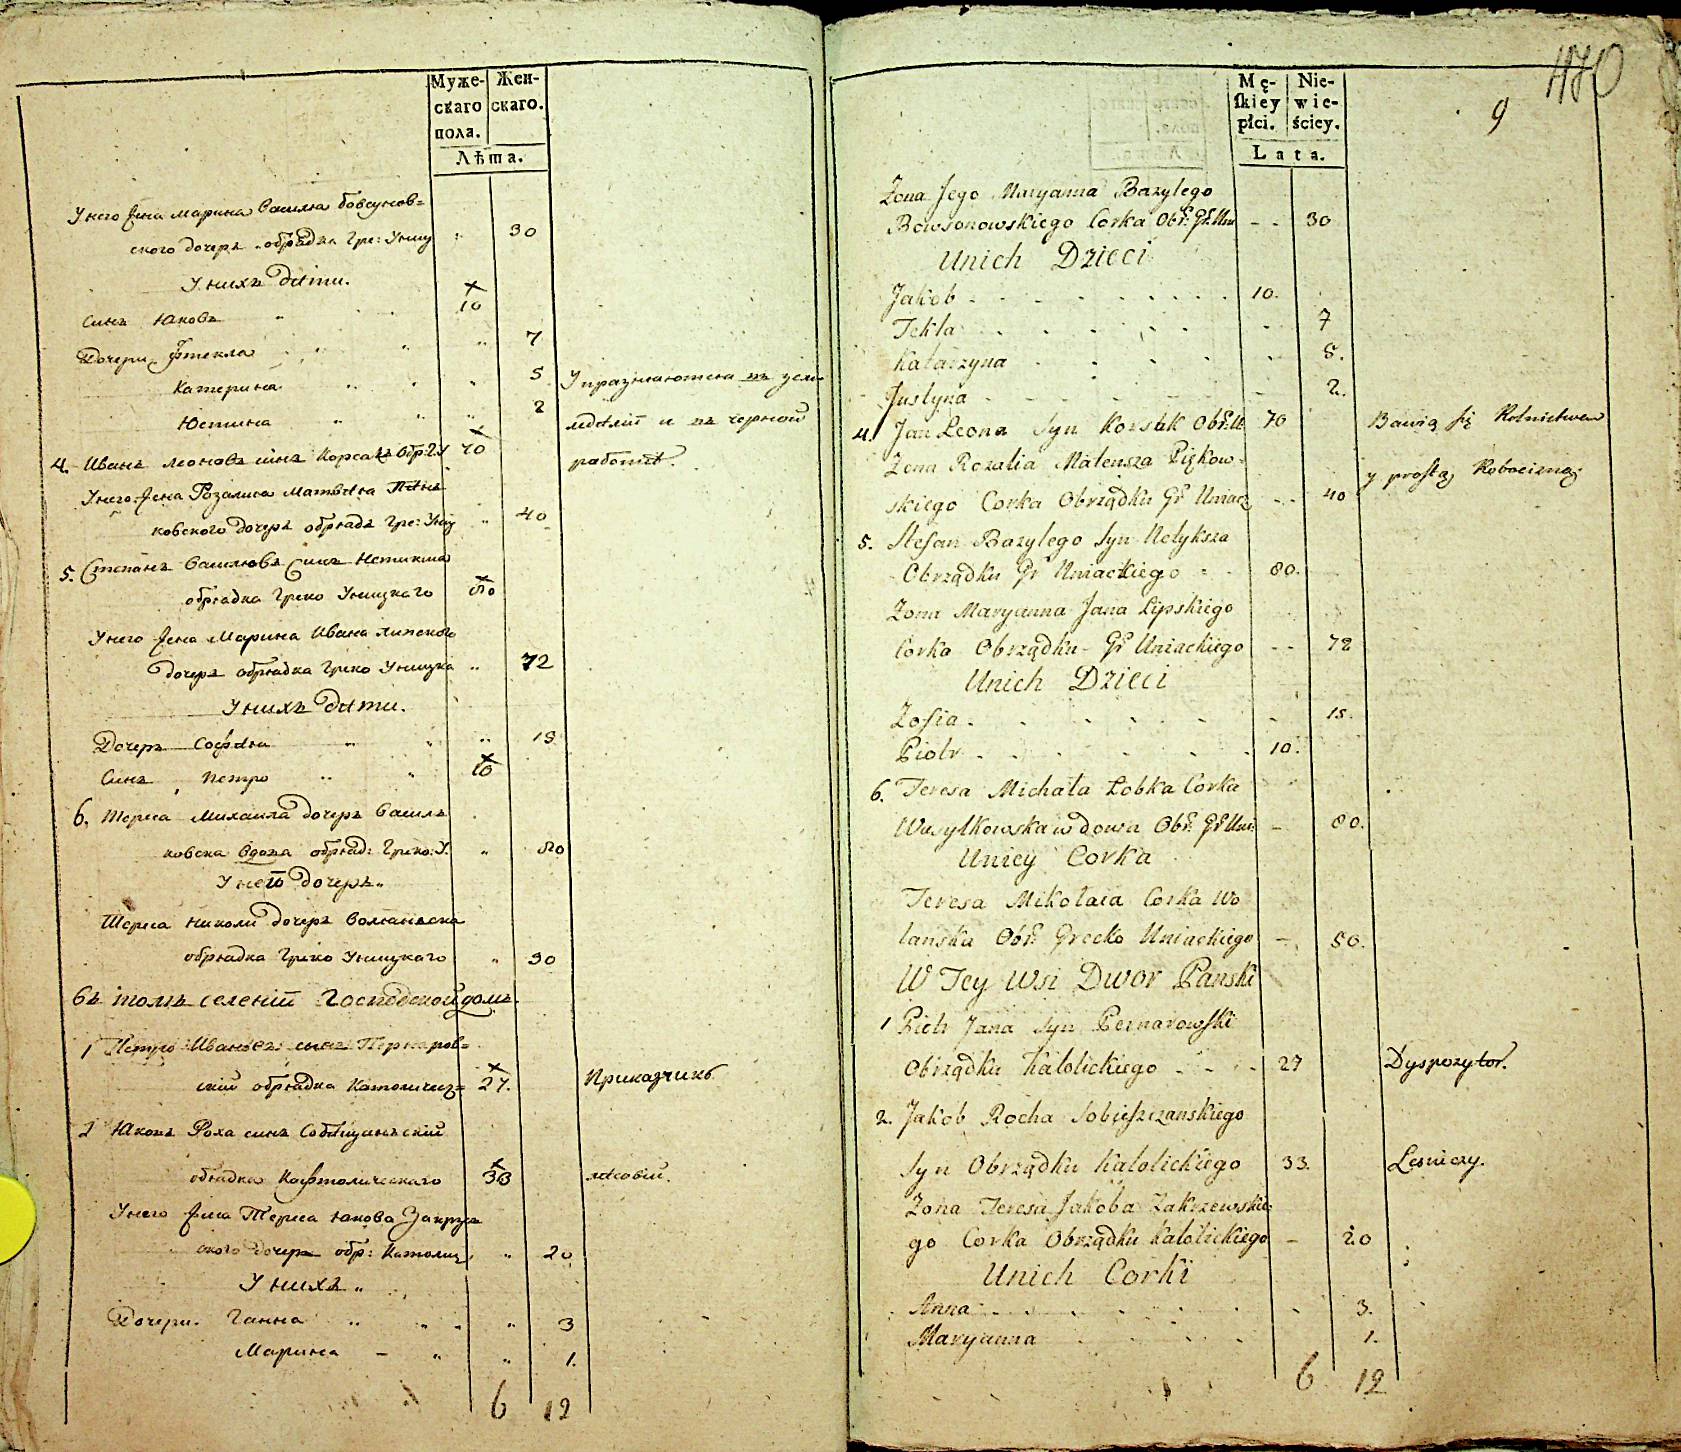 Муже-
скаго
пола.
Жен-
скаго.
Лѣта.
У него жена марина василя бовсунов=
ского дочеръ обрядка гре: Униц " 30
У нихъ дѣти.
Синъ Яковъ " 10
Дочери Фтекла " " " 7
Катерина " " " 5
Упражняются въ зем-
Юстина " " " 2
ледѣлїи и въ черной
4. Иванъ леоновъ синъ Корсакъ обр: Г.У 70
работѣ.
У него жена Розалиа Матвѣя Пѣнь
ковского дочеръ обрядъ гре: Униц " 40
5. Степанъ василювъ синъ Нетикша
обрядка Греко Уницкаго 80
У него жена Марина Ивана липского
дочеръ обрядка Греко Уницка " 72
У нихъ дѣти.
Дочеръ Софѣя " " " 15
Синъ петро " " 10
6. Тереса михаила дочеръ василь
ковска вдова обряд: Греко: У. " 80
У неї дочеръ "
Тереса николи дочеръ волянъска
обрядка Греко Уницкаго " 30
Въ томъ селенїи Господской домъ.
1 Петро Ивановъ сынъ Пернаров=
скїй обрядка Католичез= 27.
Приказчикъ
2 Яковъ Роха синъ Собѣщанъскїй
обрядка Кафтолическаго 33
лѣсовїй.
У него жена Тереса якова Закрзев
ского дочеръ обр: католиц " 20
У нихъ "
Дочери. Ганна " " " " 3
Марина – " " 1.
6 12
Mę-
skiey
płci.
Nie-
wie-
ściey.
Lata.
470
9
Zona Jego Maryanna Bazylego
Bowsonowskiego Corka Obr: Gr: Un - - 30
Unich Dzieci
Jakob 10.
Tekla 7
Katarzyna 5.
Justyna 2.
4. Jan Leona Syn Korsak Obr: U 70
Bawią się Rolnictwem
Zona Rozalia Mateusza Piękow-
y prostą Robocizną.
skiego Corka Obrządku Gr Uniack - - 40
5. Stefan Bazylego Syn Netyksza
Obrządku Gr Uniackiego - - 80.
Zona Maryanna Jana Lipskiego
Corka Obrządku Gr Uniackiego - - 72
Unich Dzieci
Zofia 15.
Piotr 10.
6. Teresa Michała Łobka Corka
Wasylkowska wdowa Obr: Gr Uni: - 80.
Uniey Corka
Teresa Mikołaia Corka Wo
lanska Obr: Grecko Uniackiego - 50.
W Tey Wsi Dwor Panski
1 Piotr Jana Syn Pernarowski
Obrządku Katolickiego 27
Dyspozytor.
2. Jakob Rocha Sobieszczanskiego
Syn Obrządku Katolickiego 33.
Lesniczy.
Zona Teresa Jakoba Zakrzewskie-
go Corka Obrządku Katolickiego - 20
Unich Corki
Anna 3.
Maryanna 1.
6 12